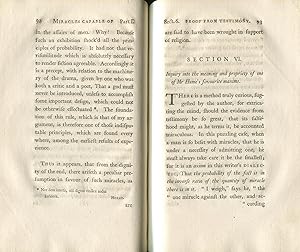 92 MIRACLES CAPABLE OF Part I.
in the affairs of men. Why? Because
such an exhibition shock'd all the principles
of probability. It had not that verisimilitude
which is absolutely necessary
to render fiction agreeable. Accordingly it
is a precept, with relation to the machinery
of the drama, given by one who was
both a critic and a poet, That a god must
never be introduced, unless to accomplish
some important design, which could not
be otherwise effectuated *. The foundation
of this rule, which is that of my argument,
is therefore one of those indisputable
principles, which are found every
where, amongst the earliest results of experience.
THUS it appears, that from the dignity
of the end, there ariseth a peculiar presumption
in favour of such miracles, as
* Nec deus intersit, nisi dignus vindice nodus
Inciderit. HORAT.
are
Sect. 6. PROOF FROM TESTIMONY. 93
are said to have been wrought in support
of religion.
SECTION VI.
Inquiry into the meaning and propriety of one
of Mr Hume's favourite maxims.
THERE is a method truly curious, suggested
by the author, for extricating
the mind, should the evidence from
testimony be so great, that its falsehood
might, as he terms it, be accounted
miraculous. In this puzzling case, when
a man is so beset with miracles, that he is
under a necessity of admitting one, he
must always take care it be the smallest;
for it is an axiom in this writer's DIALECTIC,
That the probability of the fact is in
the inverse ratio of the quantity of miracle
there is in it. "I weigh," says he, "the
"one miracle against the other, and
"cording